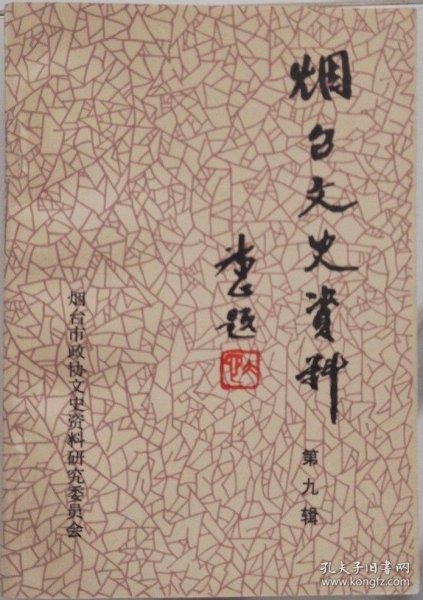 烟台文史資料
第九辑
题
烟台市政协文史资料研究委员会
孔夫子旧书网
www.kongfz.com